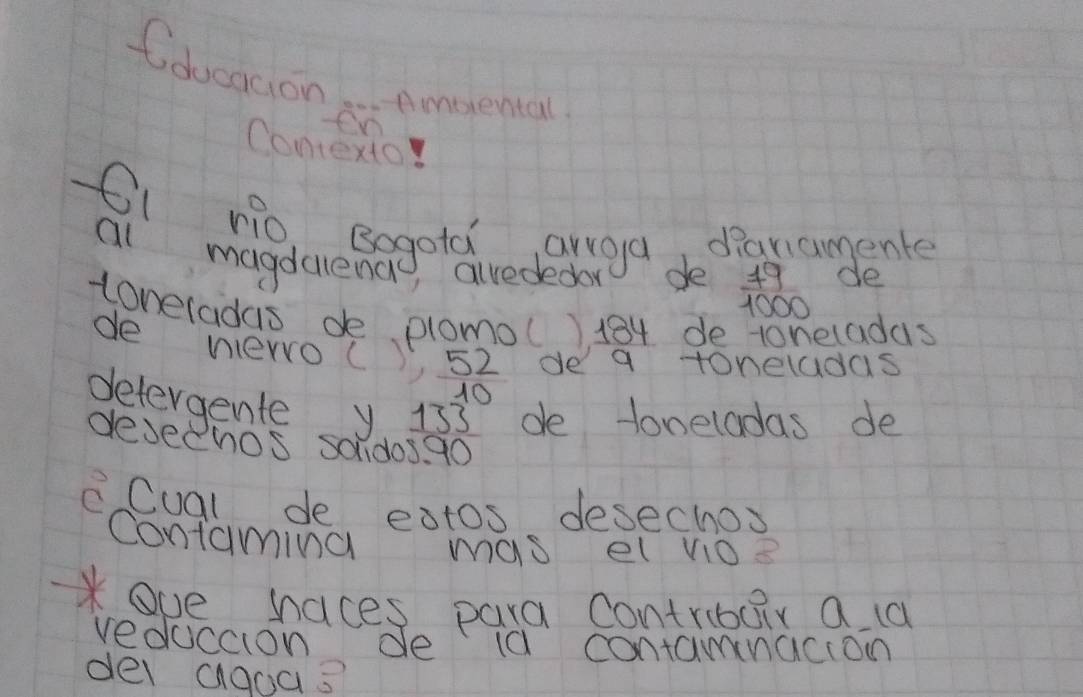 Educación Ambiental.
En
Contexto!
El rio Bogotá arroja diariamente
al magdalena, alrededor de 19/1000 de
toneladas de plomo ( ) 184/9 de toneladas
de hierro ( ), 52/10 de toneladas
detergente y 133/90 de toneladas de
desechos solidos.
¿Cual de estos desechos
Contamina mas el rio?
* Que haces para Contribuir a la
reducción de la contaminación
del agua?